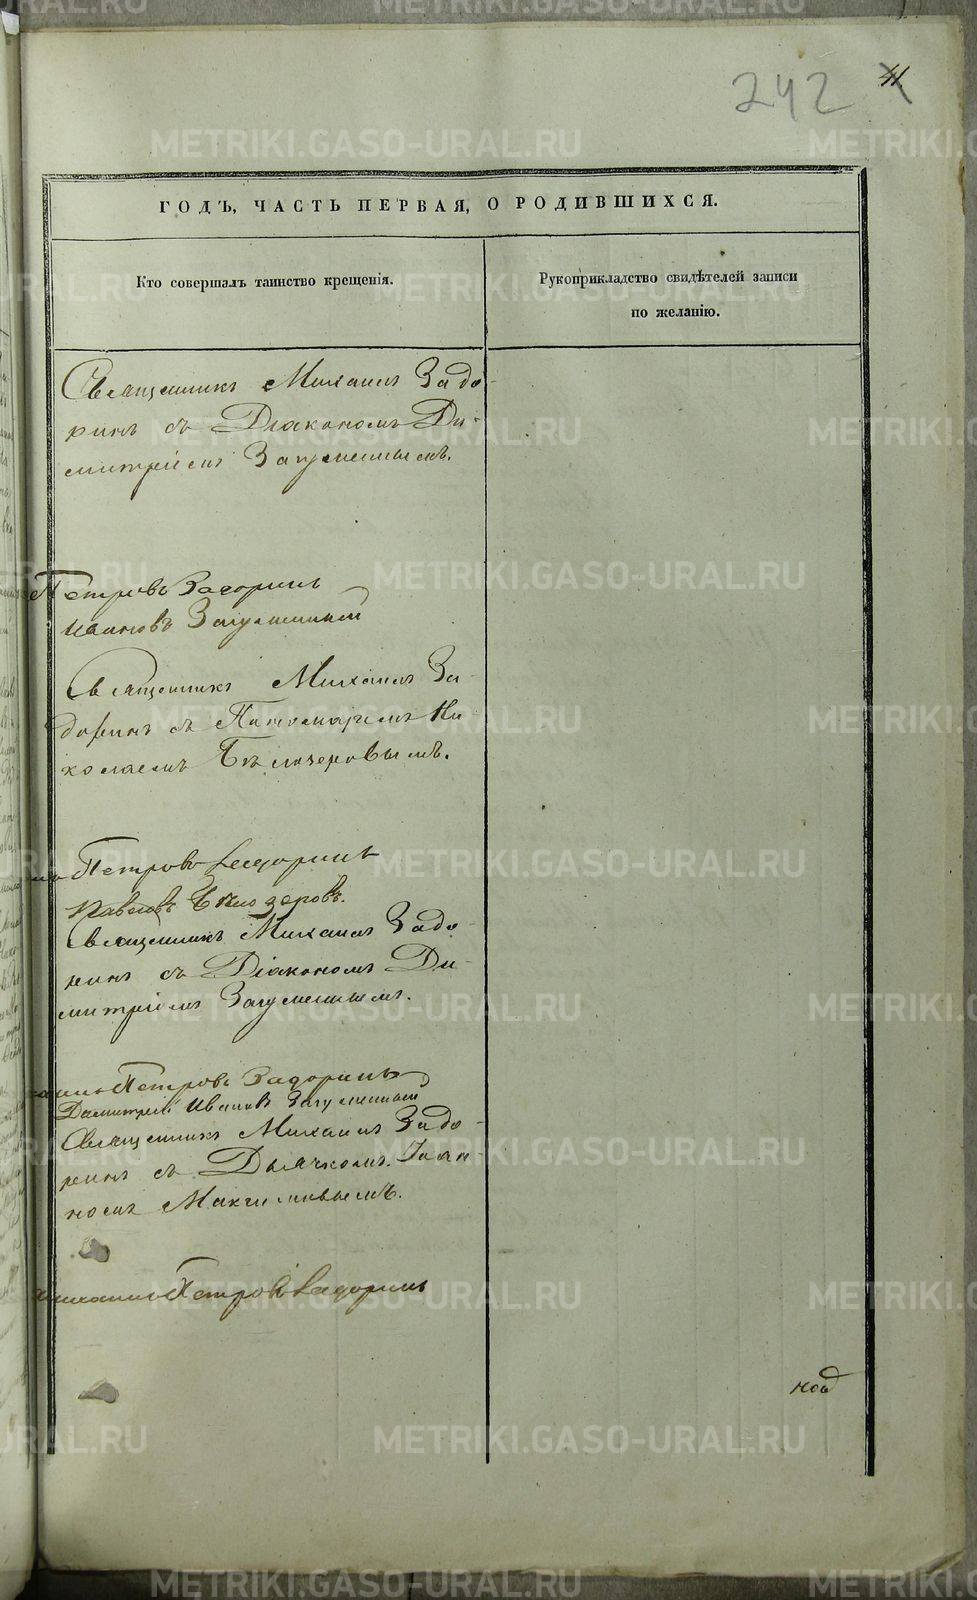 242
41.
ГОДЪ, ЧАСТЬ ПЕРВАЯ, О РОДИВШИХСЯ.
Кто совершалъ таинство крещенія.
Рукоприкладство свидѣтелей записи
по желанію.
Священникъ Михаилъ Задо-
ринъ съ Діакономъ Ди-
митріемъ Загуменнымъ.
Петровъ Задоринъ
Ивановъ Загуменный
Священникъ Михаилъ За-
доринъ съ Пономаремъ Ни-
колаемъ Бѣлозеровымъ.
Петровъ Задоринъ
Павловъ Бѣлозеровъ.
Священникъ Михаилъ Задо-
ринъ съ Діакономъ Ди-
митріемъ Загуменнымъ.
Петровъ Задоринъ
Димитрій Ивановъ Загуменный
Священникъ Михаилъ Задо-
ринъ съ Дьячкомъ
Максимовымъ.
Михаилъ Петровъ Задоринъ
METRIKI.GASO-URAL.RU